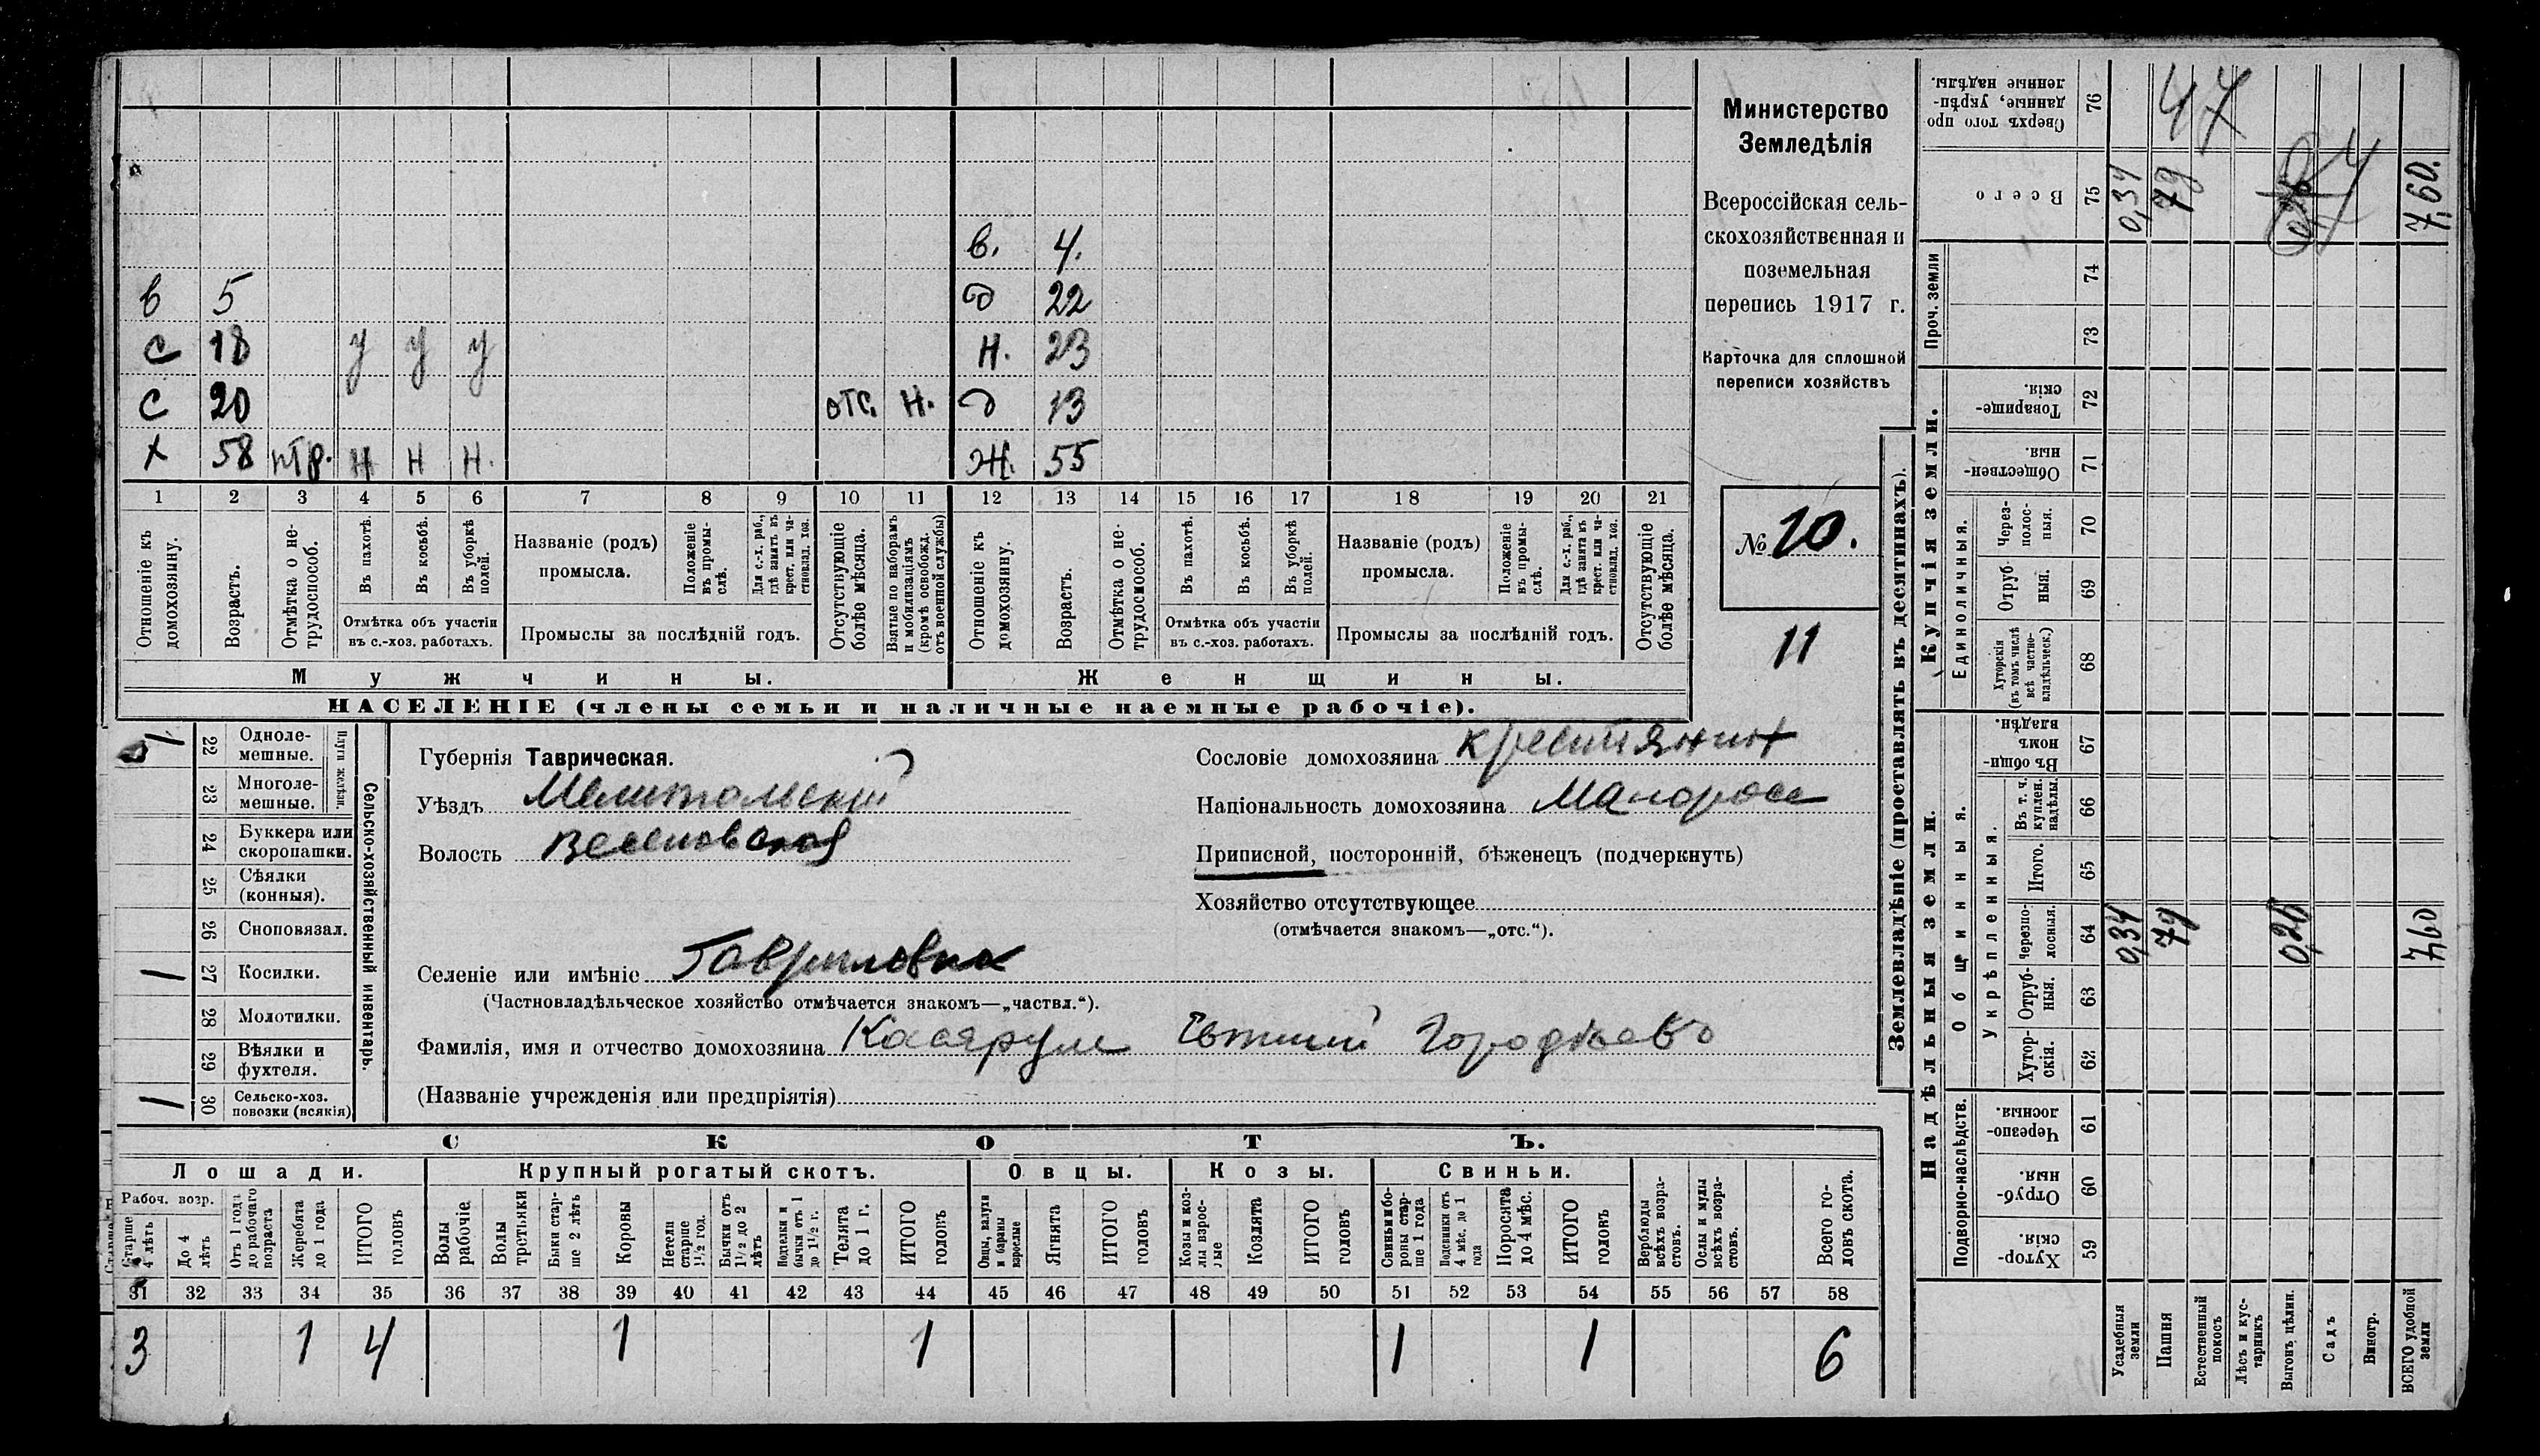 в. 4.
в 5 д 22
с 18 у у у н. 23
с 20 отс. н. д 13
х 58 нтр. н н н. ж. 55
1 2 3 4 5 6 7 8 9 10 11 12 13 14 15 16 17 18 19 20 21
Отношеніе къ домохозяину.
Возрастъ.
Отмѣтка о не-трудоспособ.
Въ пахотѣ.
Въ косьбѣ.
Въ уборкѣ полей.
Отмѣтка объ участіи
въ с.-хоз. работахъ.
Названіе (родъ)
промысла.
Положеніе въ промы-слѣ.
Для с.-х. раб., гдѣ занятъ въ крест. или ча-стновлад. хоз.
Промыслы за послѣдній годъ.
Отсутствующіе болѣе мѣсяца.
Взятые по наборамъ и мобилизаціямъ (кромѣ освобожд. отъ военной службы)
Отношеніе къ домохозяину.
Возрастъ.
Отмѣтка о не-трудоспособ.
Въ пахотѣ.
Въ косьбѣ.
Въ уборкѣ полей.
Отмѣтка объ участіи
въ с.-хоз. работахъ.
Названіе (родъ)
промысла.
Положеніе въ промы-слѣ.
Для с.-х. раб., гдѣ занята въ крест. или ча-стновлад. хоз.
Промыслы за послѣдній годъ.
Отсутствующіе болѣе мѣсяца.
Мужчины. Женщины.
НАСЕЛЕНІЕ (члены семьи и наличные наемные рабочіе).
Министерство
Земледѣлія
Всероссійская сель-
скохозяйственная и
поземельная
перепись 1917 г.
Карточка для сплошной
переписи хозяйствъ
№ 10.
11
1 22 Одноле-мешные.
23 Многоле-мешные.
Плуги желѣзн.
24 Буккера или скоропашки.
25 Сѣялки (конныя).
26 Сноповязал.
1 27 Косилки.
28 Молотилки.
29 Вѣялки и фухтеля.
1 30 Сельско-хоз. повозки (всякія)
Сельско-хозяйственный инвентарь.
Губернія Таврическая.
Уѣздъ Мелитопольскій
Волость Веселовская
Селеніе или имѣніе Гавриловка
(Частновладѣльческое хозяйство отмѣчается знакомъ—„частвл.“).
Фамилія, имя и отчество домохозяина
(Названіе учрежденія или предпріятія)
Сословіе домохозяина крестьянин
Національность домохозяина Малоросс
Приписной, посторонній, бѣженецъ (подчеркнуть)
Хозяйство отсутствующее
(отмѣчается знакомъ—„отс.“).
СКОТЪ.
Лошади. Крупный рогатый скотъ. Овцы. Козы. Свиньи.
Рабоч. возр.
Старше 4 лѣтъ
До 4 лѣтъ
Отъ 1 года до рабочаго возраста
Жеребята до 1 года
ИТОГО головъ
Волы рабочіе
Волы третьяки
Быки стар-ше 2 лѣтъ
Коровы
Нетели старше 1½ год.
Бычки отъ 1½ до 2 лѣтъ
Подтелки и бычки отъ 1 до 1½ г.
Телята до 1 г.
ИТОГО головъ
Овцы, валухи и бараны взрослые
Ягнята
ИТОГО головъ
Козы и коз-лы взрос-лые
Козлята
ИТОГО головъ
Свиньи и бо-ровы стар-ше 1 года
Подсвинки отъ 4 мѣс. до 1 года
Поросята до 4 мѣс.
ИТОГО головъ
Верблюды всѣхъ возра-стовъ.
Ослы и мулы всѣхъ возра-стовъ.
Всего го-ловъ скота.
31 32 33 34 35 36 37 38 39 40 41 42 43 44 45 46 47 48 49 50 51 52 53 54 55 56 57 58
3 1 4 1 1 1 1 6
Землевладѣніе (проставлять въ десятинахъ).
Надѣльныя земли. Купчія земли. Проч. земли
Подворно-наслѣдств.
Общинныя.
Укрѣпленныя.
Единоличныя.
Хутор-скія. 59
Отруб-ныя. 60
Черезпо-лосныя. 61
Хутор-скія. 62
Отруб-ныя. 63
Черезпо-лосныя. 64
Итого. 65
Въ т. ч. куплен. надѣлы. 66
Въ общи-номъ владѣн. 67
Хуторскія (въ томъ числѣ всѣ частно-владѣльческ.) 68
Отруб-ныя. 69
Через-полос-ныя. 70
Обществен-ныя. 71
Товарище-скія. 72
73
74
Всего 75
Сверхъ того про-данные, укрѣп-ленные надѣлы. 76
Усадебныя земли 0,34 0,34
Пашня 79 79
Естественный покосъ
Лѣсъ и кус-тарникъ
Выгонъ цѣлин. 0,26
Садъ
Виногр.
ВСЕГО удобной земли 7,60 7,60.
47